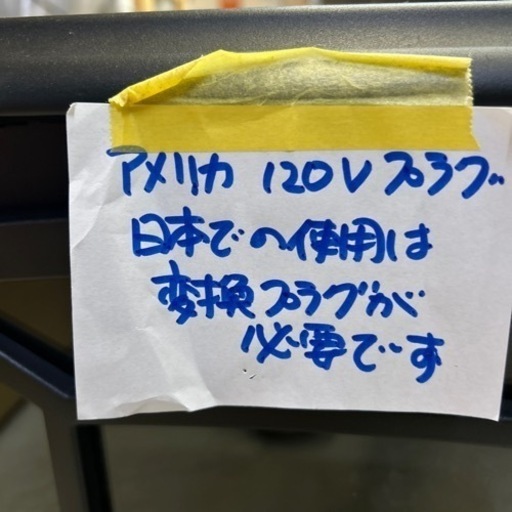 アメリカ 120V プラグ
日本での使用は
変換プラグが
必要です